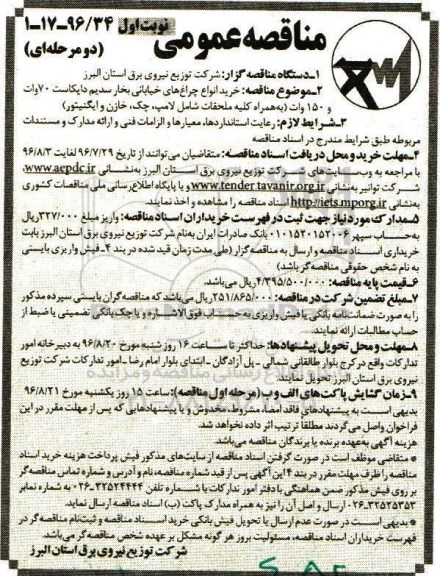 نوبت اول ۹۶/۳۴-۱۷-۱
مناقصه عمومی (دو مرحله‌ای)
۱ـ دستگاه مناقصه گزار: شرکت توزیع نیروی برق استان البرز
۲ـ موضوع مناقصه: خرید انواع چراغ‌های خیابانی بخار سدیم دایکاست ۷۰وات
و ۱۵۰ وات (به‌همراه کلیه ملحقات شامل لامپ، چک، خازن و ایگنیتور)
۳ـ شرایط لازم: رعایت استانداردها، معیارها و الزامات فنی و ارائه مدارک و مستندات
مربوطه طبق شرایط مندرج در اسناد مناقصه
۴ـ مهلت خرید و محل دریافت اسناد مناقصه: متقاضیان می‌توانند از تاریخ ۹۶/۷/۲۹ لغایت ۹۶/۸/۳
با مراجعه به وب‌سایت‌های شرکت توزیع نیروی برق استان البرز به‌نشانی www.aepdc.ir،
شرکت توانیر به‌نشانی www.tender.tavanir.org.ir و یا پایگاه اطلاع‌رسانی ملی مناقصات کشوری
به‌نشانی http://iets.mporg.ir اسناد مناقصه را مشاهده و اخذ نمایند.
۵ـ مدارک مورد نیاز جهت ثبت در فهرست خریداران اسناد مناقصه: واریز مبلغ ۳۲۷/۰۰۰ریال
به‌حساب سپهر ۰۱۰۱۵۲۰۱۵۲۰۰۶ بانک صادرات ایران به‌نام شرکت توزیع نیروی برق استان البرز بابت
خریداری اسناد مناقصه و ارسال به مناقصه گزار (طی مدت زمان قید شده در بند ۴ـ فیش واریزی بایستی
به نام شخص حقوقی مناقصه‌گر باشد)
۶ـ قیمت پایه مناقصه: ۴/۳۹۵/۵۰۰/۰۰۰ریال می‌باشد.
۷ـ مبلغ تضمین شرکت در مناقصه: ۲۵۱/۸۶۵/۰۰۰ ریال می‌باشد که مناقصه‌گران بایستی سپرده مذکور
را به صورت ضمانت‌نامه بانکی یا فیش واریزی به حساب فوق‌الاشاره و یا چک بانکی تضمینی یا ضبط از
حساب مطالبات ارائه نمایند.
۸ـ مهلت و محل تحویل پیشنهادها: حداکثر تا ساعت ۱۶ روز شنبه مورخ ۹۶/۸/۲۰ به دبیرخانه امور
تدارکات واقع در کرج بلوار طالقانی شمالی ـ پل آزادگان ـ ابتدای بلوار امام رضا ـ امور تدارکات شرکت توزیع
نیروی برق استان البرز تحویل نمایند.
۹ـ زمان گشایش پاکت‌های الف و ب (مرحله اول مناقصه): ساعت ۱۵ روز یکشنبه مورخ ۹۶/۸/۲۱
بدیهی است به پیشنهادهای فاقد امضاء، مشروط، مخدوش و یا پیشنهادهایی که پس از مهلت مقرر در این
فراخوان واصل می‌گردند مطلقا ترتیب اثر داده نخواهد شد.
هزینه آگهی به‌عهده برنده یا برندگان مناقصه می‌باشد.
* متقاضی موظف است در صورت گرفتن اسناد مناقصه از سایت‌های مذکور فیش پرداخت هزینه خرید اسناد
مناقصه را ظرف مهلت مقرر در بند ۴ این آگهی پس از قید شماره مناقصه، نام و آدرس و شماره تماس مناقصه‌گر
بر روی فیش مذکور ضمن هماهنگی با دفتر امور تدارکات با شماره تلفن ۳۲۵۲۴۴۴۴-۰۲۶ به شماره نمابر
۳۲۵۲۵۳۵۳-۰۲۶ ارسال و اصل آن را نیز به همراه مدارک پاکت (ب) اسناد مناقصه ارسال نماید.
* بدیهی است در صورت عدم ارسال یا تحویل فیش بانکی خرید اسناد مناقصه و ثبت‌نام مناقصه‌گر در
فهرست خریداران اسناد مناقصه، مسئولیت بروز هر گونه مشکل بر عهده شخص مناقصه‌گر می‌باشد.
شرکت توزیع نیروی برق استان البرز